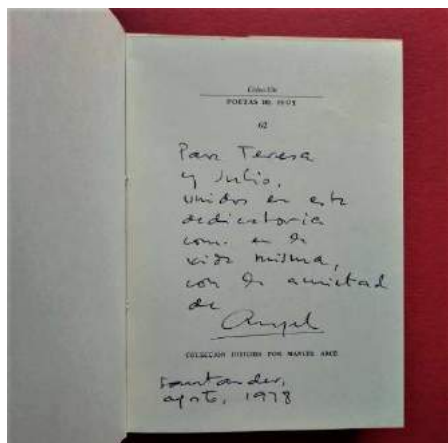 Colección
POETAS DE HOY
62
Para Teresa
y Julio,
unidos en esta
dedicatoria
como en la
vida misma,
con la amistad
de
Angel
COLECCION DIRIGIDA POR MANUEL ARCE
Santander,
agosto, 1978